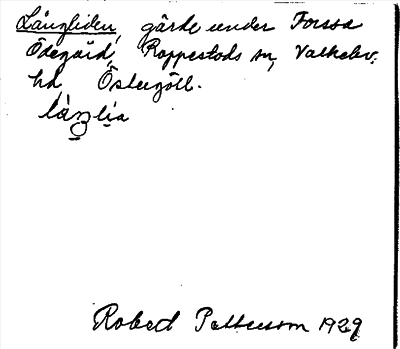 Långliden, gärde under Forssa
Ödegård, Rappestads sn, Valkebo.
hd, Östergötl.
lån̥glia
Robert Pettersson 1929